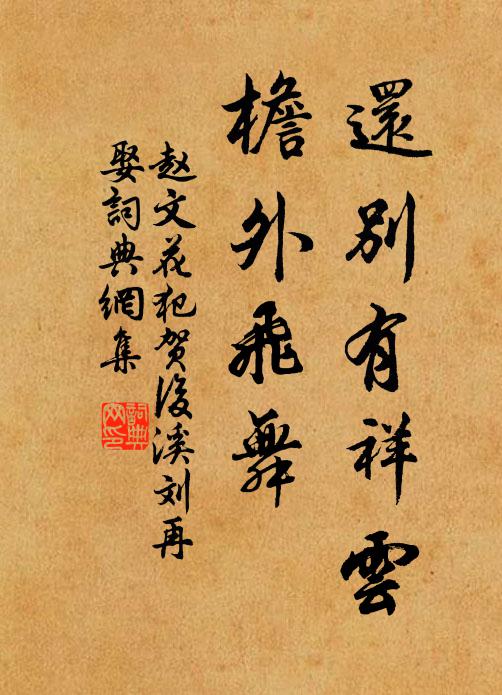 還別有祥雲
檐外飛舞
赵文花犯贺後溪刘再
娶詞典網集
詞典
网印